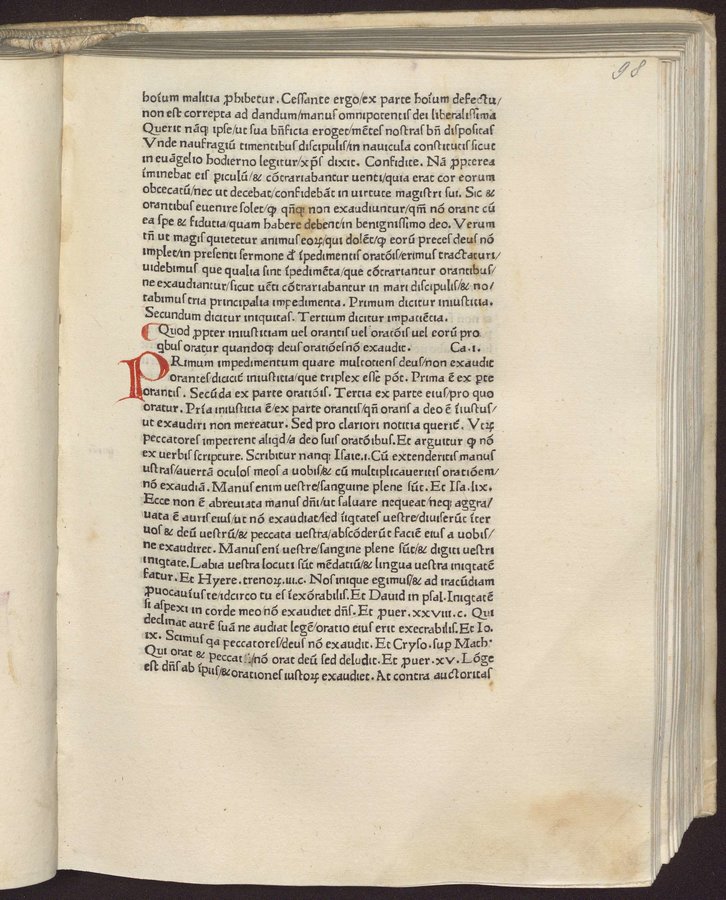 98
hoıum malitia ꝓhibetur. Cessante ergo/ex parte hoıum defectu/
non est correpta ad dandum/manus omnipotentis dei liberalissima
Querit nāq; ipse/ut sua bn̄ficia eroget/mētes nostras bn̄ dispositas
Vnde naufragiū timentibus discipulis/in nauicula constitutis sicut
in euāgelio hodierno legitur/xp̄s dixit. Confidite. Nā ꝓpterea
iminebat eis piculū/& cōtrariabantur uenti/quia erat cor eorum
obcecatū/nec ut decebat/confidebāt in uirtute magistri sui. Sic &
orantibus euenire solet/ꝙ qn̄q; non exaudiuntur/qm̄ nō orant cū
ea spe & fidutia/quam habere debent/in benignissimo deo. Verum
tn̄ ut magis quietetur animus eoꝝ/qui dolēt/ꝙ eorū preces deus nō
implet/in presenti sermone đ īpedimentis oratōis/erimus tractaturi/
uidebimus que qualia sint īpedimēta/que cōtrariantur orantibus/
ne exaudiantur/sicut uēti cōtrariabantur in mari discipulis/& no/
tabimus tria principalia impedimenta. Primum dicitur iniustitia.
Secundum dicitur iniquitas. Tertium dicitur impatiētia.
Quod ꝓpter iniustitiam uel orantis uel oratōis uel eorū pro
qbus oratur quandoq; deus oratiōes nō exaudit. Ca.i.
PRimum impedimentum quare multotiens deus/non exaudit
orantes/dicit̄ iniustitia/que triplex esse pōt. Prima ē ex pte
orantis. Secūda ex parte oratiōis. Tertia ex parte eius/pro quo
oratur. Pria iniustitia ē/ex parte orantis/qn̄ orans a deo ē īiustus/
ut exaudiri non mereatur. Sed pro clariori notitia querit̄. Vtꝝ
peccatores impetrent aliqd/a deo suis oratōibus. Et arguitur ꝙ nō
ex uerbis scripture. Scribitur nanq; Isaie.i. Cū extenderitis manus
ustras/auertā oculos meos a uobis/& cū multiplicaueritis oratiōem/
nō exaudiā. Manus enim uestre/sanguine plene sūt. Et Isa.lix.
Ecce non ē abreuiata manus dn̄i/ut saluare nequeat/neq; aggra/
uata ē auris eius/ut nō exaudiat/sed iiqtates uestre/diuiserūt iter
uos & deū uestrū/& peccata uestra/abscōderūt faciē eius a uobis/
ne exaudiret. Manus eni uestre/sangine plene sūt/& digiti uestri
iniqtate. Labia uestra locuti sūt mēdatiū/& lingua uestra iniqtatē
fatur. Et Hyere. trenoꝝ.iii.c. Nos inique egimus/& ad iracūdiam
ꝓuocauius te/idcirco tu es īexōrabilis. Et Dauid in psal. Iniqtatē
si aspexi in corde meo nō exaudiet dn̄s. Et ꝓuer.xxviii.c. Qui
declinat aurē suā ne audiat legē/oratio eius erit execrabilis. Et Io.
ix. Scimus qa peccatores/deus nō exaudit. Et Cryso. sup Math.
Qui orat & peccat/nō orat deū sed deludit. Et ꝓuer.xv. Lōge
est dn̄s ab īpiis/& orationes iustoꝝ exaudiet. At contra auctoritas